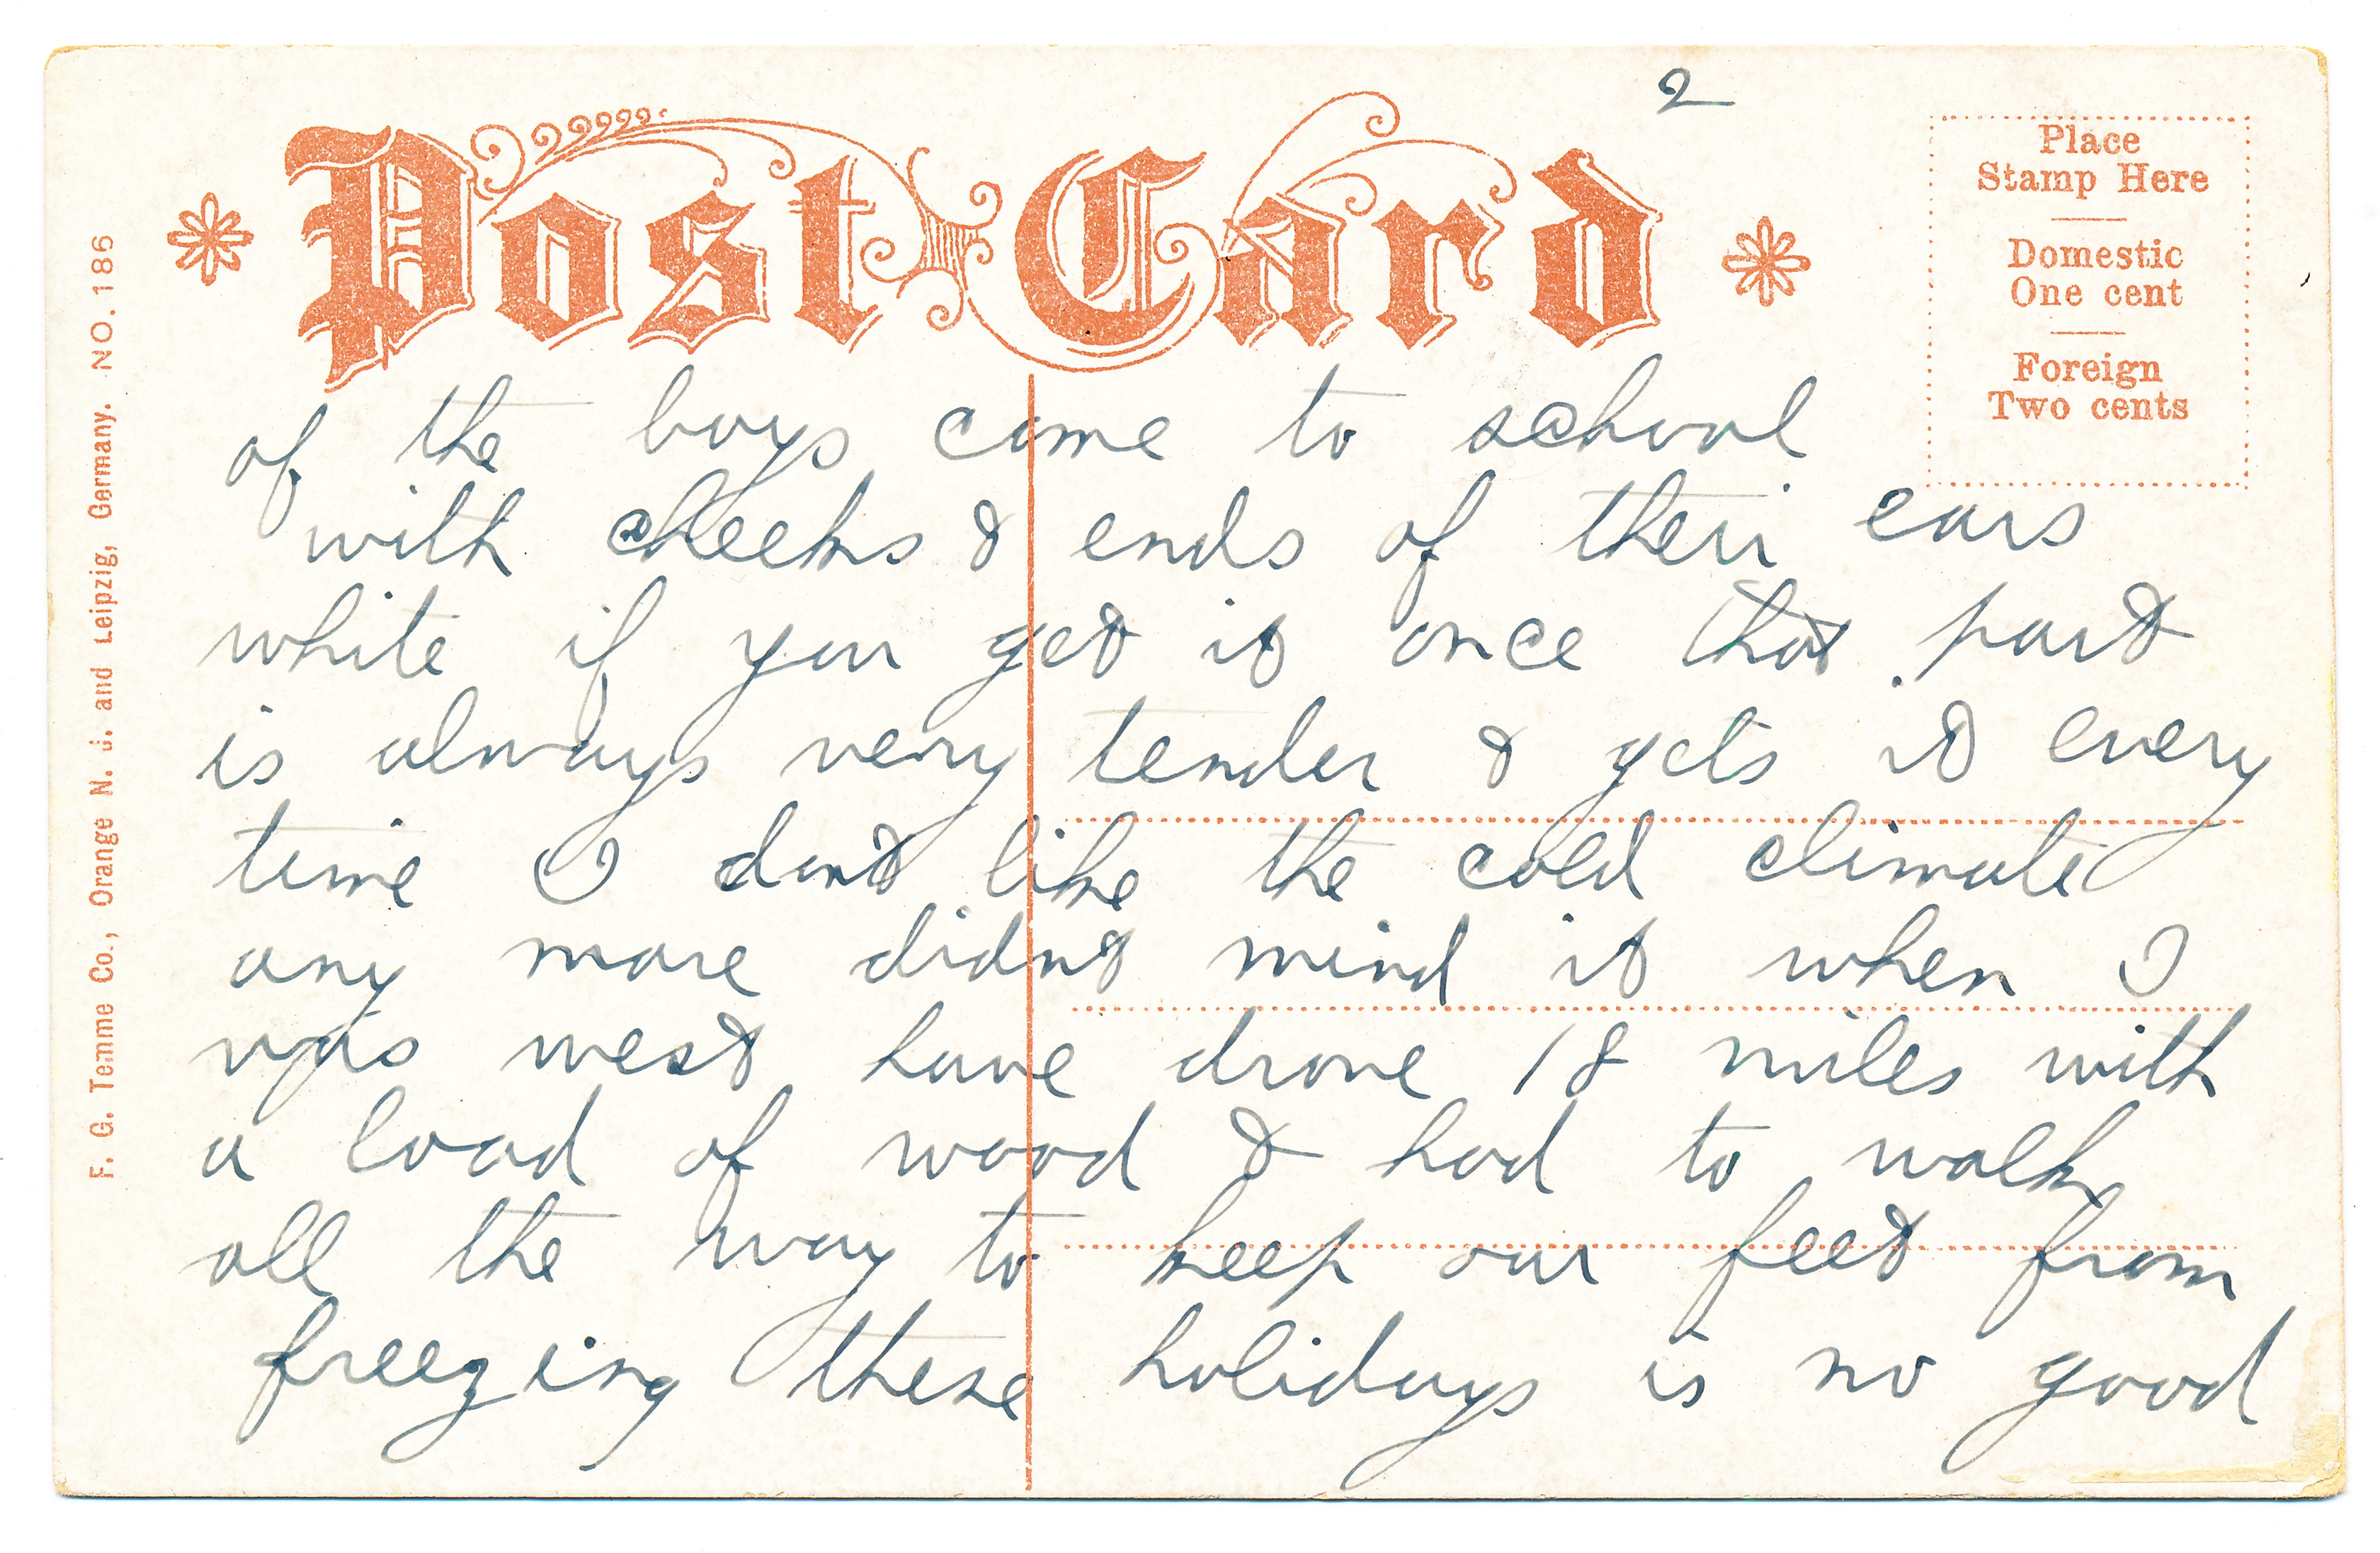 2
Post Card
Place
Stamp Here
Domestic
One cent
Foreign
Two cents
F. G. Temme Co., Orange N. J. and Leipzig, Germany. NO. 186
of the boys come to school
with cheeks & ends of their ears
white if you get it once that part
is always very tender & gets it every
time I dont like the cold climate
any more didnt mind it when I
was west have drove 18 miles with
a load of wood & had to walk
all the way to keep our feet from
freezing these holidays is no good